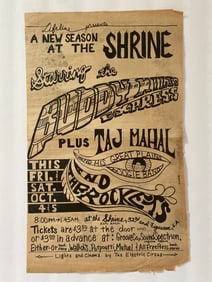 Lifeline presents
A NEW SEASON
AT THE SHRINE
Starring the
BUDDY MILES
EXPRESS
PLUS TAJ MAHAL
AND HIS GREAT PLAINS
BOOGIE BAND
THIS
FRI. &
SAT.
OCT.
4&5
AND
8:00PM-1:45AM. at the Shrine, 32nd and
Tickets are $3.50 at the door
or $3.00 in advance at: Groove Co., Sound Spectrum,
Either-Or, Wallichs, Potpourri, Mutual & All Free Press
Lights and Chems by The Electric Circus